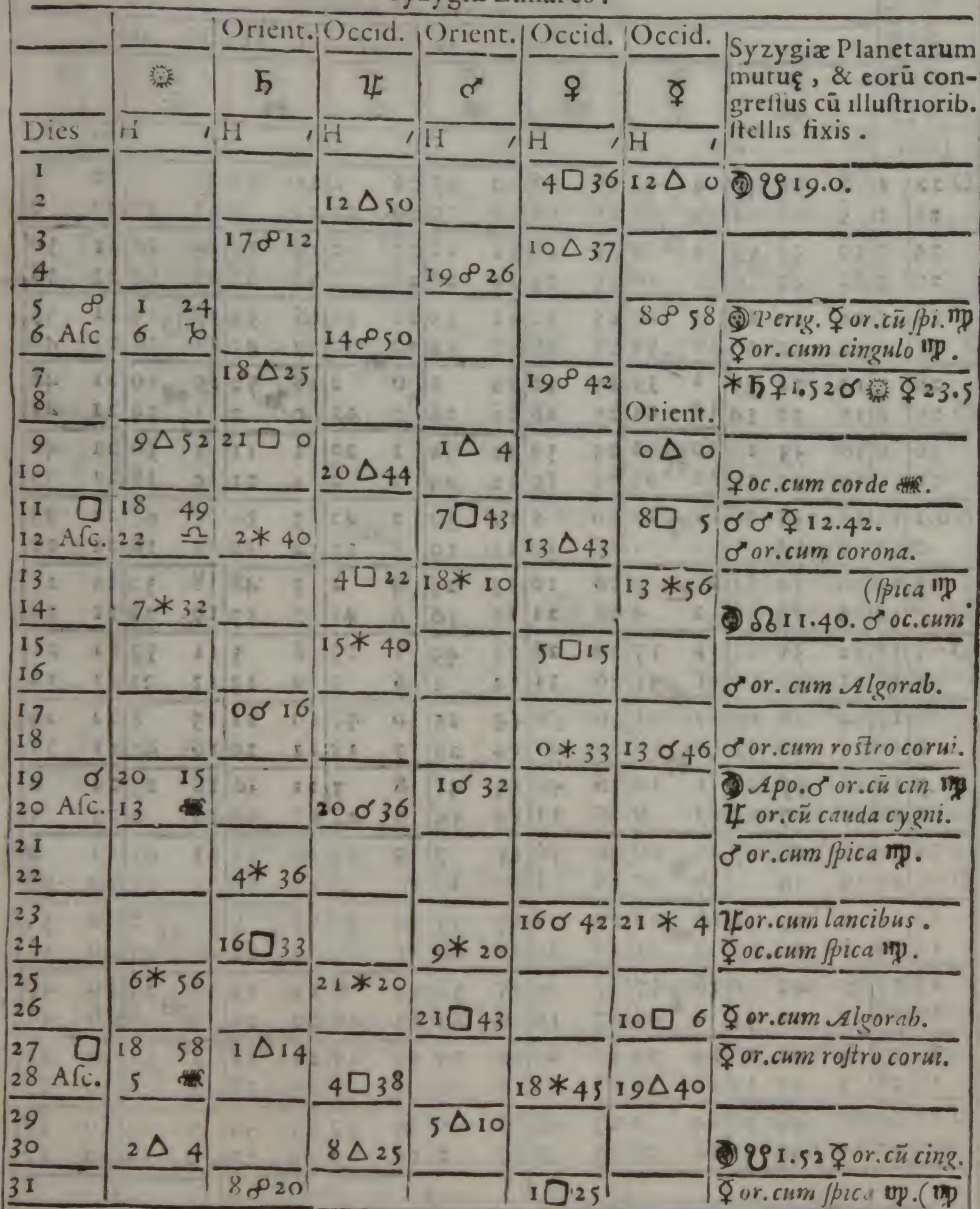 Orient. Occid. Orient. Occid. Occid. Syzygiæ Planetarum
☉ ♄ ♃ ♂ ♀ ☿ mutuę, & eorū con-
greſſus cū illuſtriorib.
Dies H ′ H ′ H ′ H ′ H ′ H ′ ſtellis fixis.
1 4□36 12△ 0 ☽ ☋ 19.0.
2 12△50
3 17☍12 10△37
4 19☍26
5 ☍ 1 24 8☍58 ☽ Perig. ☿ or.cū ſpi. ♍
6 Aſc 6 ♑ 14☍50 ☿ or. cum cingulo ♍.
7 18△25 19☍42 ⚹♄♀1.52☌☉☿23.5
8 Orient.
9 9△52 21□ 0 1△ 4 0△ 0
10 20△44 ♀oc.cum corde ♏.
11 □ 18 49 7□43 8□ 5 ☌♂☿12.42.
12 Aſc. 22 ♎ 2⚹ 40 13△43 ♂or.cum corona.
13 4□22 18⚹ 10 13 ⚹56 (ſpica ♍.
14. 7⚹32 ☽ ☊11.40. ♂oc.cum
15 15⚹ 40 5□15
16 ♂or. cum Algorab.
17 0☌ 16
18 0⚹33 13☌46 ♂or.cum roſtro corui.
19 ☌ 20 15 1☌32 ☽ Apo.♂ or.cū cin ♍
20 Aſc. 13 ♏ 20☌36 ♃ or.cū cauda cygni.
21 ♂or.cum ſpica ♍.
22 4⚹ 36
23 16☌42 21⚹ 4 ♃or.cum lancibus.
24 16□33 9⚹ 20 ☿oc.cum ſpica ♍.
25 6⚹56 21⚹20
26 21□43 10□ 6 ☿ or.cum Algorab.
27 □ 18 58 1△14 ☿or.cum roſtro corui.
28 Aſc. 5 ♏ 4□38 18⚹45 19△40
29 5△10
30 2△ 4 8△25 ☽ ☋ 1.52 ☿or.cū cing.
31 8☍20 1□25 ☿or.cum ſpica ♍.(♍